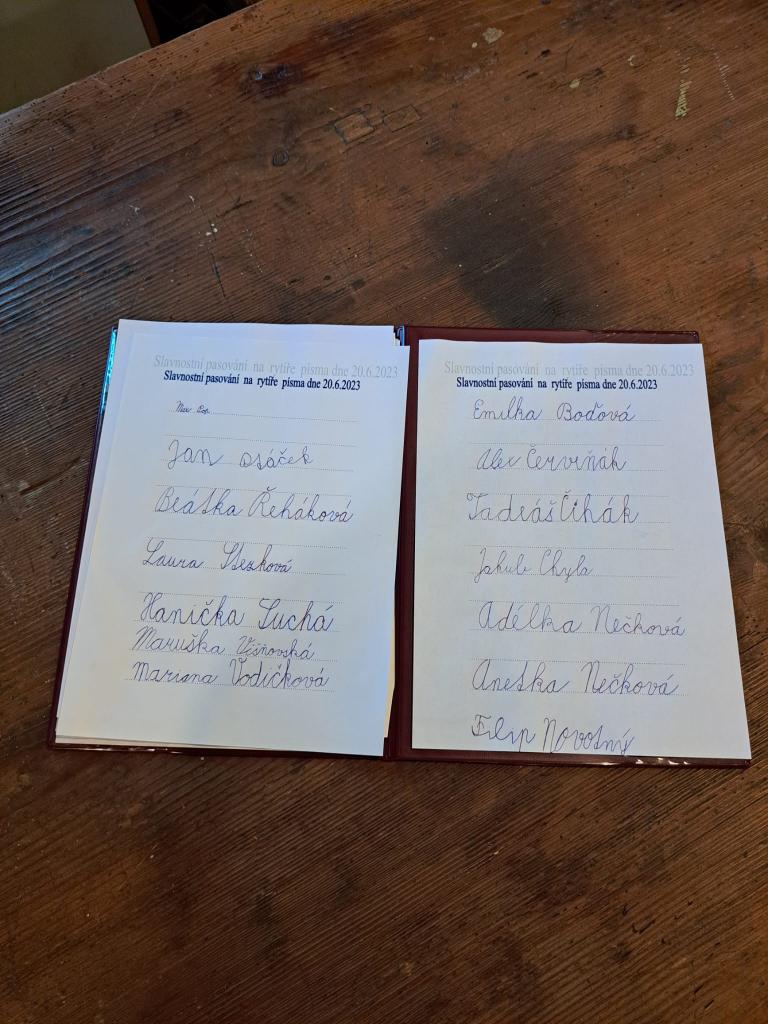 Slavnostní pasování na rytíře písma dne 20.6.2023
Slavnostní pasování na rytíře písma dne 20.6.2023
Jan
Beátka Řeháková
Laura
Hanička Suchá
Maruška Višňovská
Mariana Vodičková
Slavnostní pasování na rytíře písma dne 20.6.2023
Slavnostní pasování na rytíře písma dne 20.6.2023
Emilka Boďová
Alex Červiňák
Tadeáš Čihák
Jakub Chyla
Adélka Nečková
Anetka Nečková
Filip Novotný